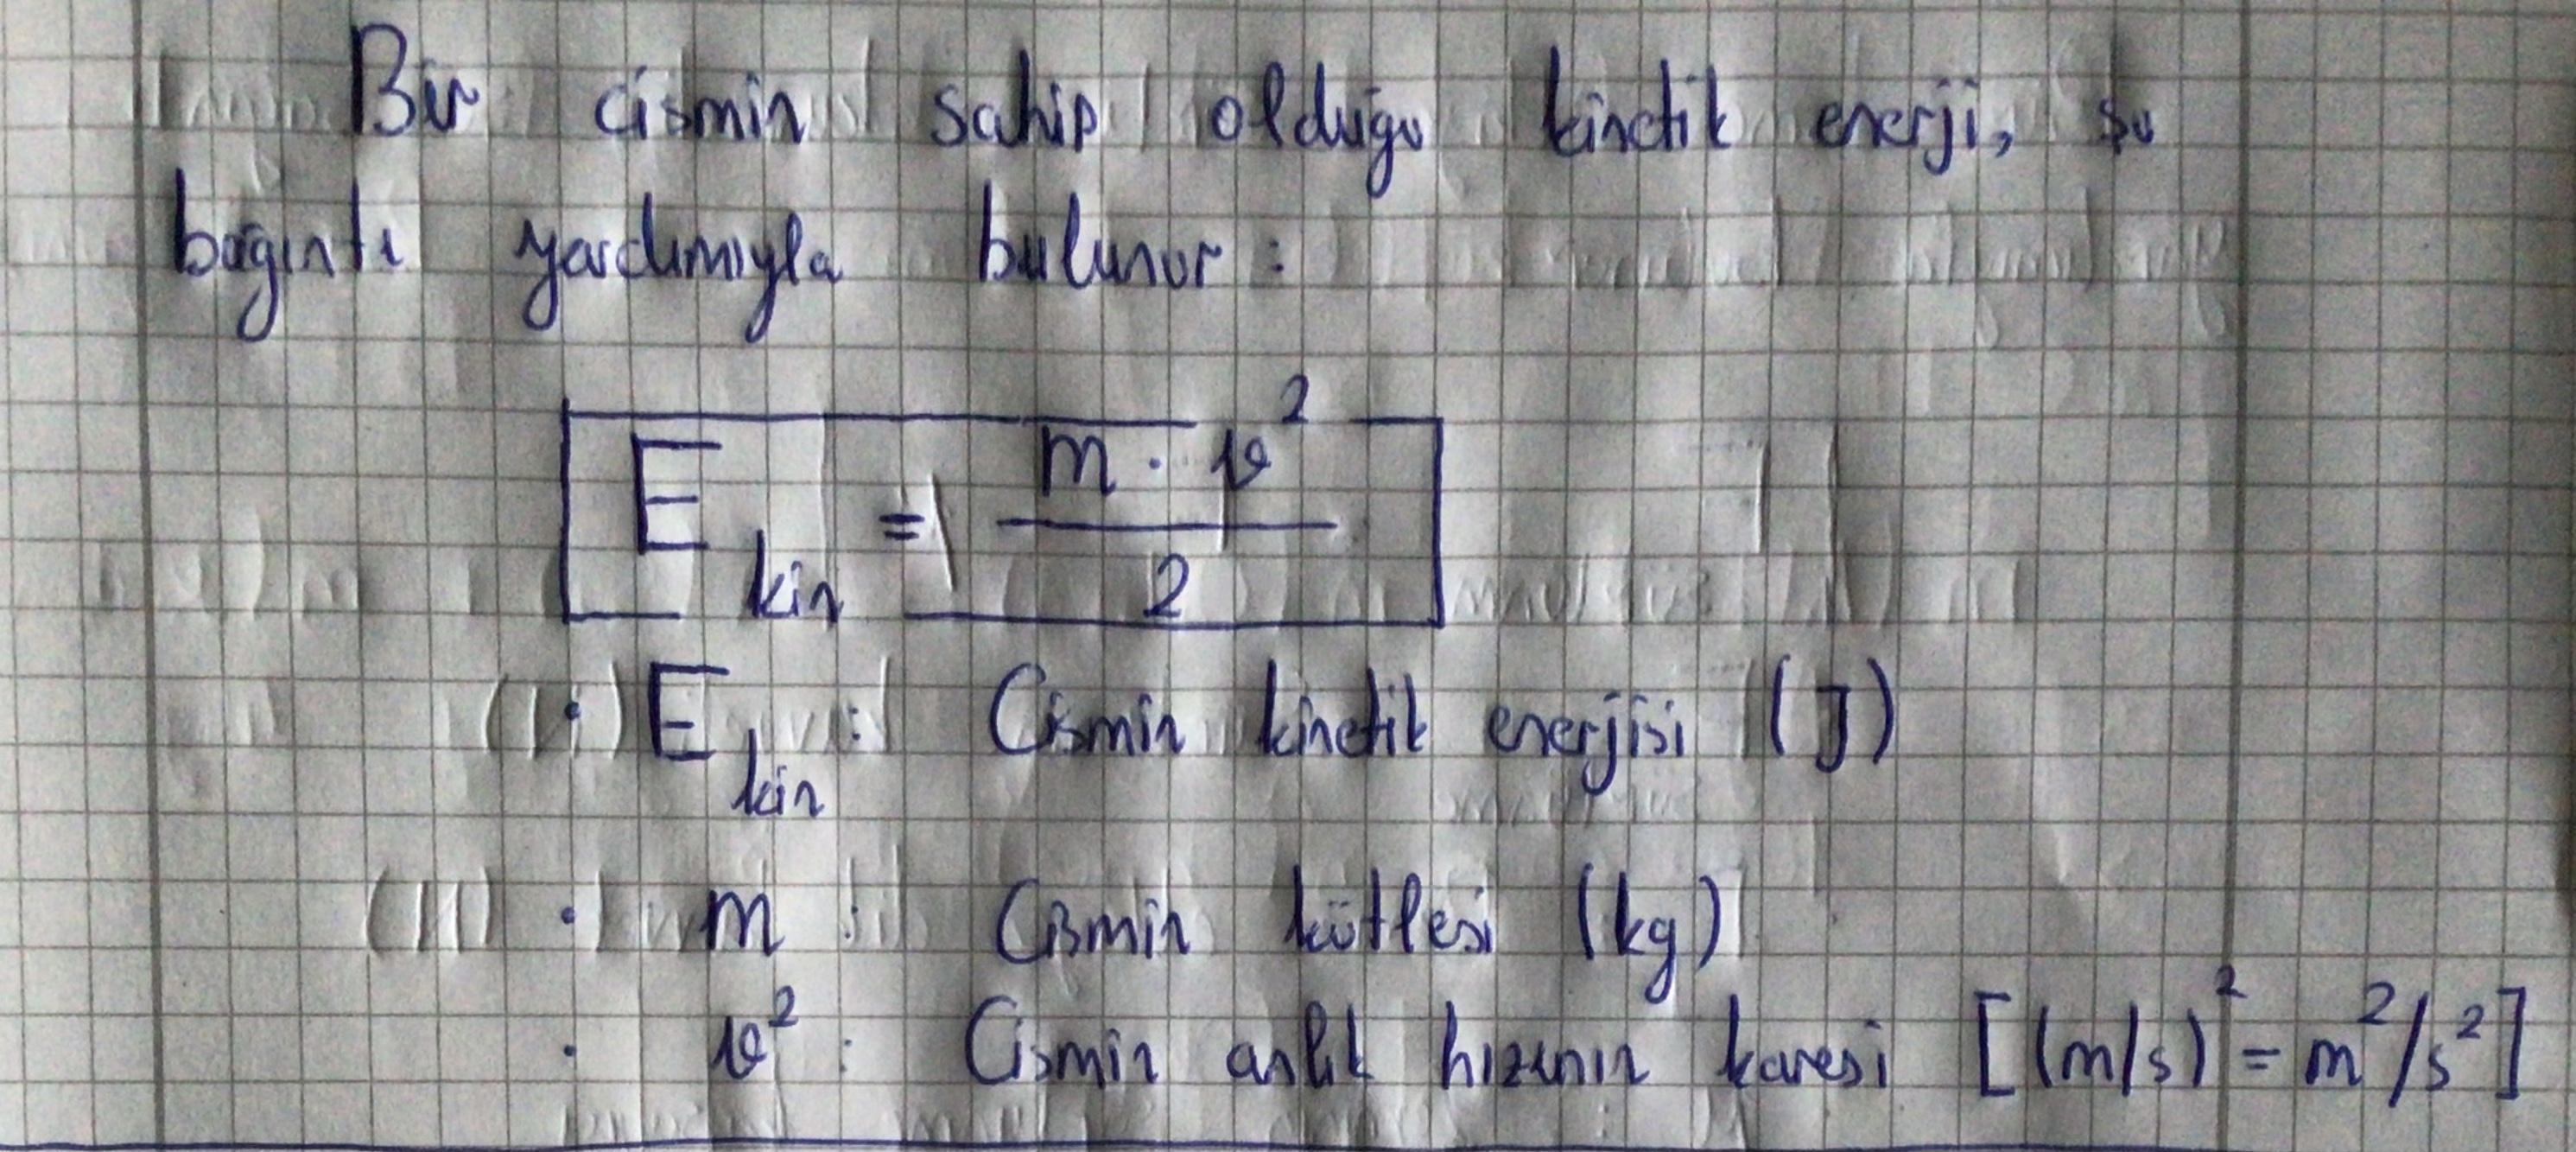 Bir cismin sahip olduğu kinetik enerji, şu
bağıntı yardımıyla bulunur :
E kin = m · v² / 2
· E kin : Cismin kinetik enerjisi (J)
· m : Cismin kütlesi (kg)
· v² : Cismin anlık hızının karesi [(m/s)² = m²/s²]